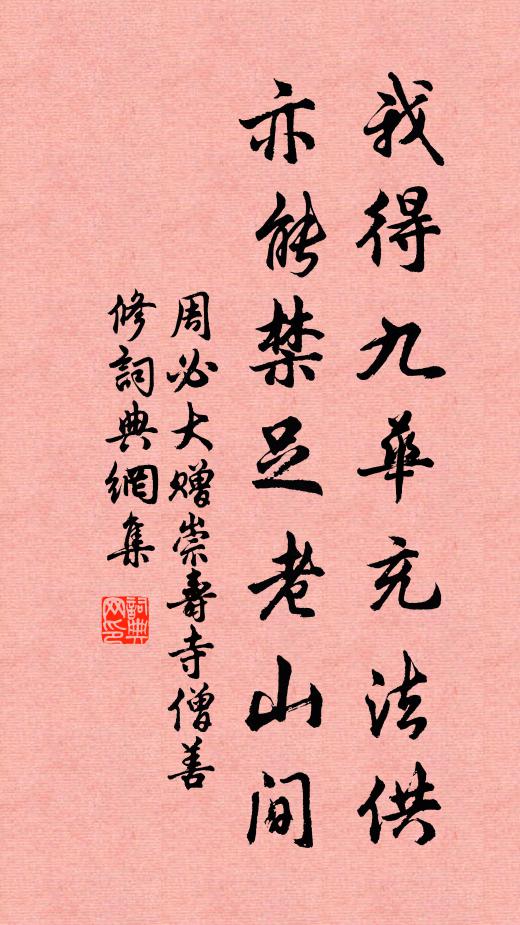 我得九華充法供
亦能禁足老山間
周必大赠崇壽寺僧善
修詞典網集
詞典
网印